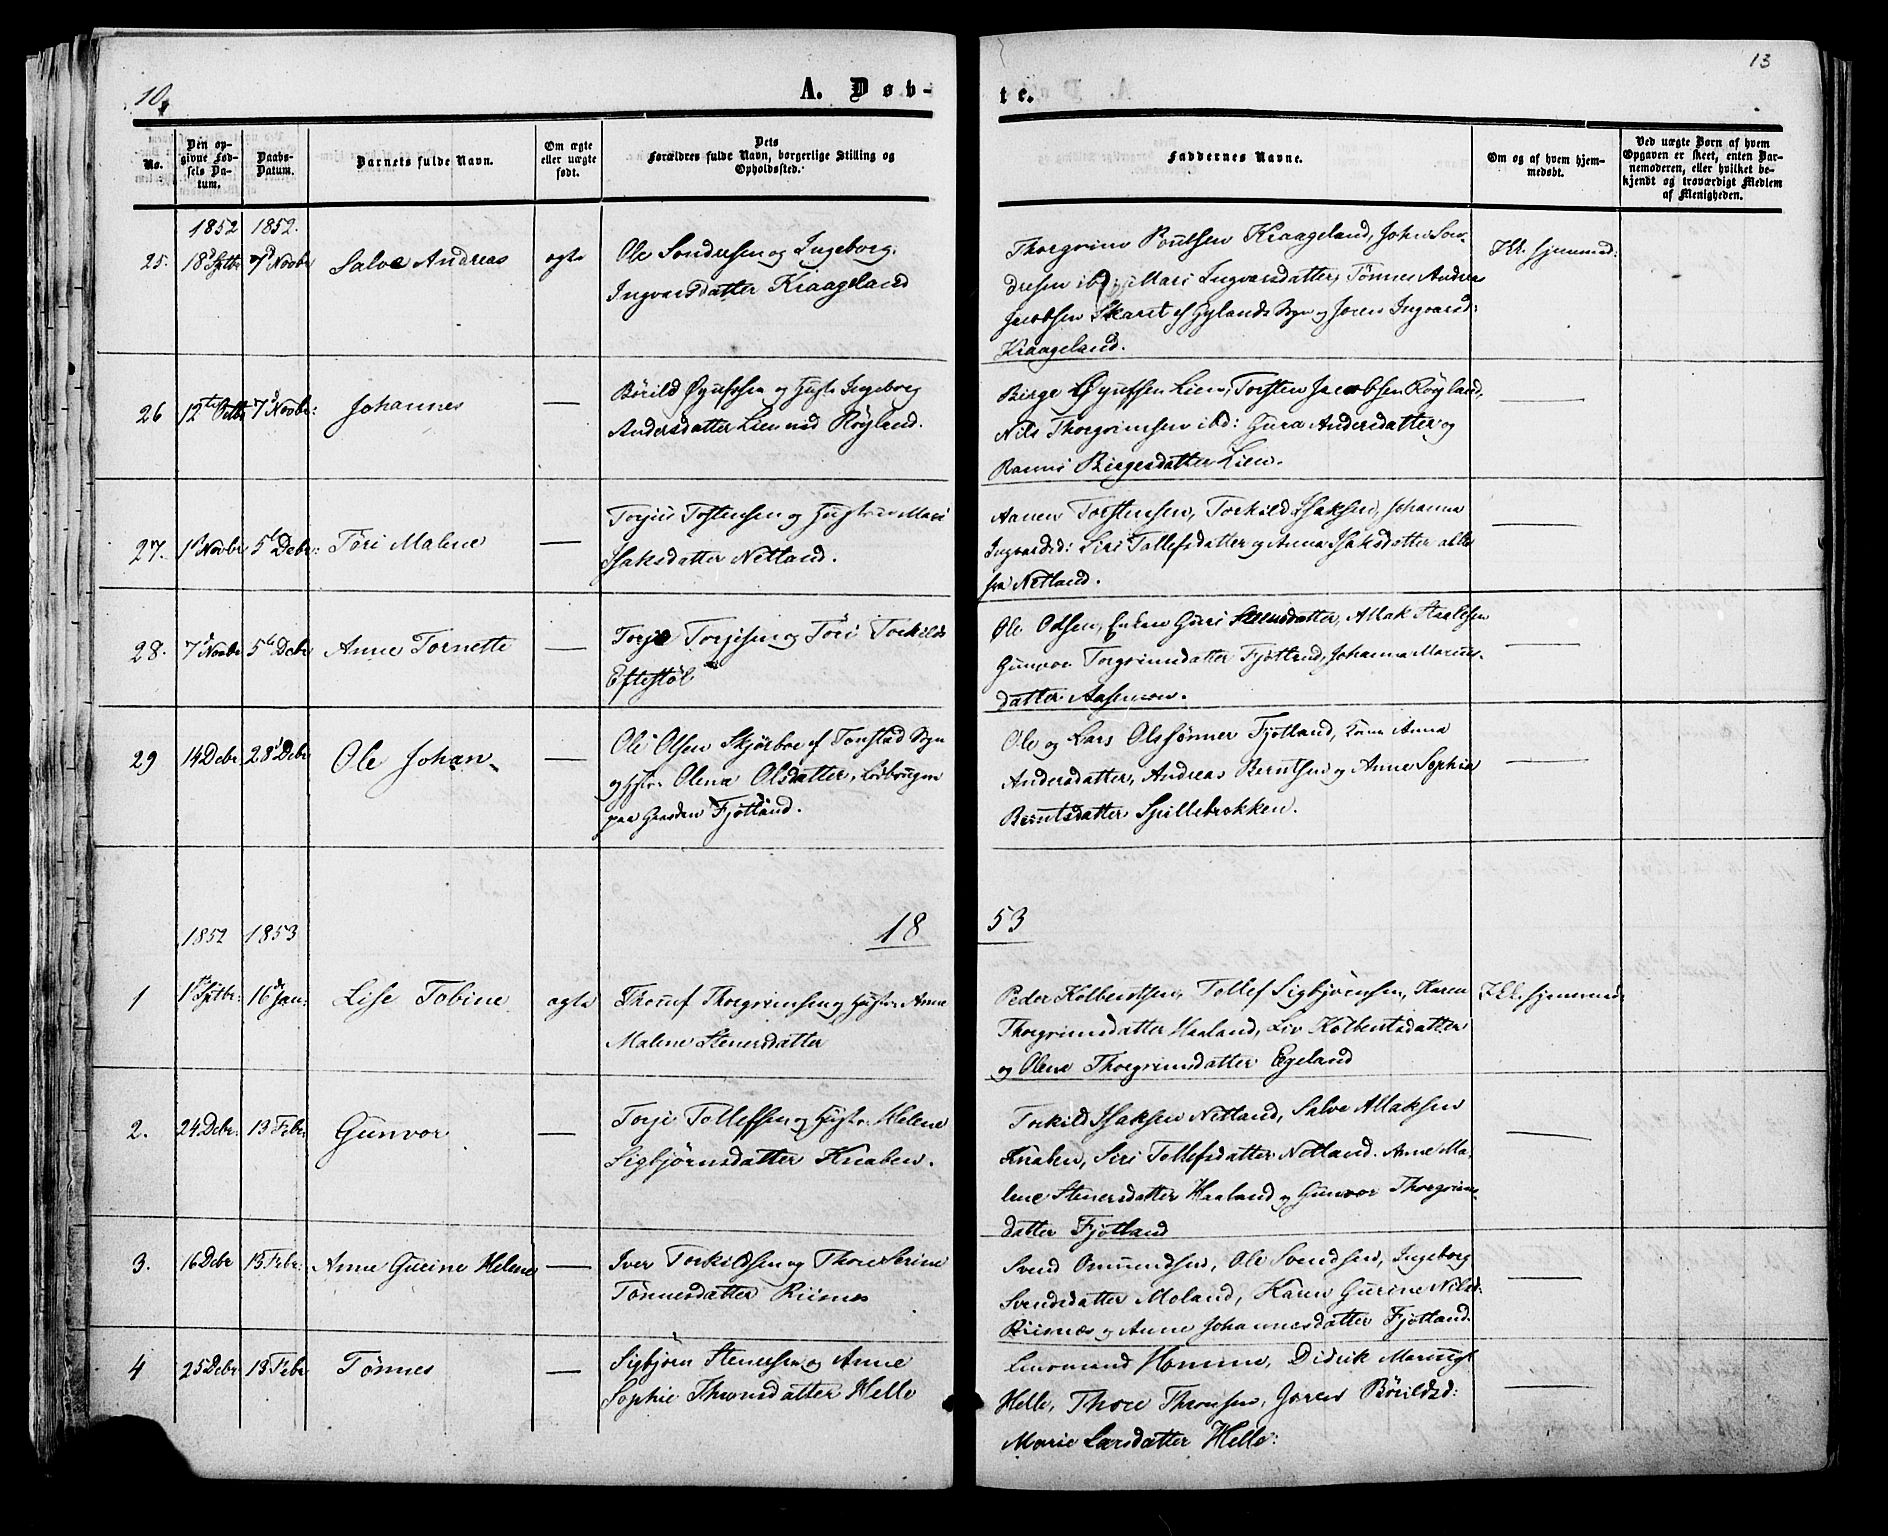 10.
A. Døb-
te.
13
No.
Den op-
givne Fød-
sels Da-
tum.
Daabs-
Datum.
Barnets fulde Navn.
Om ægte
eller uægte
født.
Dets
Forældres fulde Navn, borgerlige Stilling og
Opholdssted.
Faddernes Navne.
Om og af hvem hjem-
medøbt.
Ved uægte Børn af hvem
Opgaven er skeet, enten Bar-
nemoderen, eller hvilket be-
kjendt og troværdigt Medlem
af Menigheden.
1852 1852.
25. 18 Sptbr 7 Novbr Salve Andreas ægte
Ole Sondresen og Ingeborg
Ingvarsdatter Kraageland
Thorgrim Poulsen Kraageland, John Son-
dresen ibd: Mari Ingvarsdatter, Tønnes Andreas
Jacobsen Skaret af Gylands Sogn og Joren Ingvarsd:
Kraageland.
26 12te 7d Novbr: Johannes —
Børild Øyufsen og Hustr Ingeborg
Andersdatter Lien ved Røyland.
Birge Øyufsen Lien, Torsten Jacobsen Røyland,
Nils Thorgrimsen ibd: Gura Andersdatter og
Birgesdatter Lien.
27. 1st Novbr 5te Debr: Tori Malene —
Torjus Tostensen og Hustrue Mari
Isaksdatter Netland.
Aanen Torstensen, Torkild Isaksen, Johanna
Ingvardsd: Siri Tollefsdatter og Anna Isaksdatter alle
fra Netland.
28. 7d Novbr 5te Debr Anne Tornette —
Torje Torjesen og Tori Torkildsd
Eftestøl
Ole Olsen, Enken Guri Steensdatter, Aslak Staalesen
Gunvor Torgrimsdatter Fjotland, Johanna Marcus-
datter Aasemoen.
29 14 Debr 28d Debr Ole Johan —
Ole Olsen Skjørboe af Tonstad Sogn
og Hstr. Olena Olsdatter,
paa Gaarden Fjotland.
Ole og Lars Olssønner Fjotland, Kone Anna
Andersdatter, Andreas Berntsen og Anne Sophia
Berntsdatter Spillebrokken.
1852 1853
18
53
1 1st Sptbr: 16d Jan: Lise Tobine ægte
Thorgrimsen og Hustr. Anne
Malene Stenersdatter
Peder Kolbentsen, Tollef Sigbjørnsen, Karen
Thorgrimsdatter Haaland, Liv Kolbentsdatter
og Olene Thorgrimsdatter Egeland
2. 24 Debr: 13 Febr Gunvor —
Torje Tollefsen og Hustr. Helene
Sigbjørnsdatter Knaben.
Torkild Isaksen Netland, Salve Aslaksen
Knaben, Siri Tollefsdatter Netland. Anne Ma-
lene Stenersdatter Haaland og Gunvor Thorgrims-
datter Fjotland
3. 16 Debr 13 Febr: Anne Gurine Helene —
Iver Torkildsen og Thore Serine
Tønnesdatter Risnes
Svend Omundsen, Ole Svendsen, Ingeborg
Svendsdatter Moland, Karen Gurine Nilsd:
Risnes og Anne Johannesdatter Fjotland.
4 25 Debr 13 Febr Tønnes —
Sigbjørn Stenersen og Anne
Sophie Thronsdatter Helle
Lensmand Homme, Didrik
Helle, Thore Thronsen, Joren Børildsd:
Marie Larsdatter Helle: